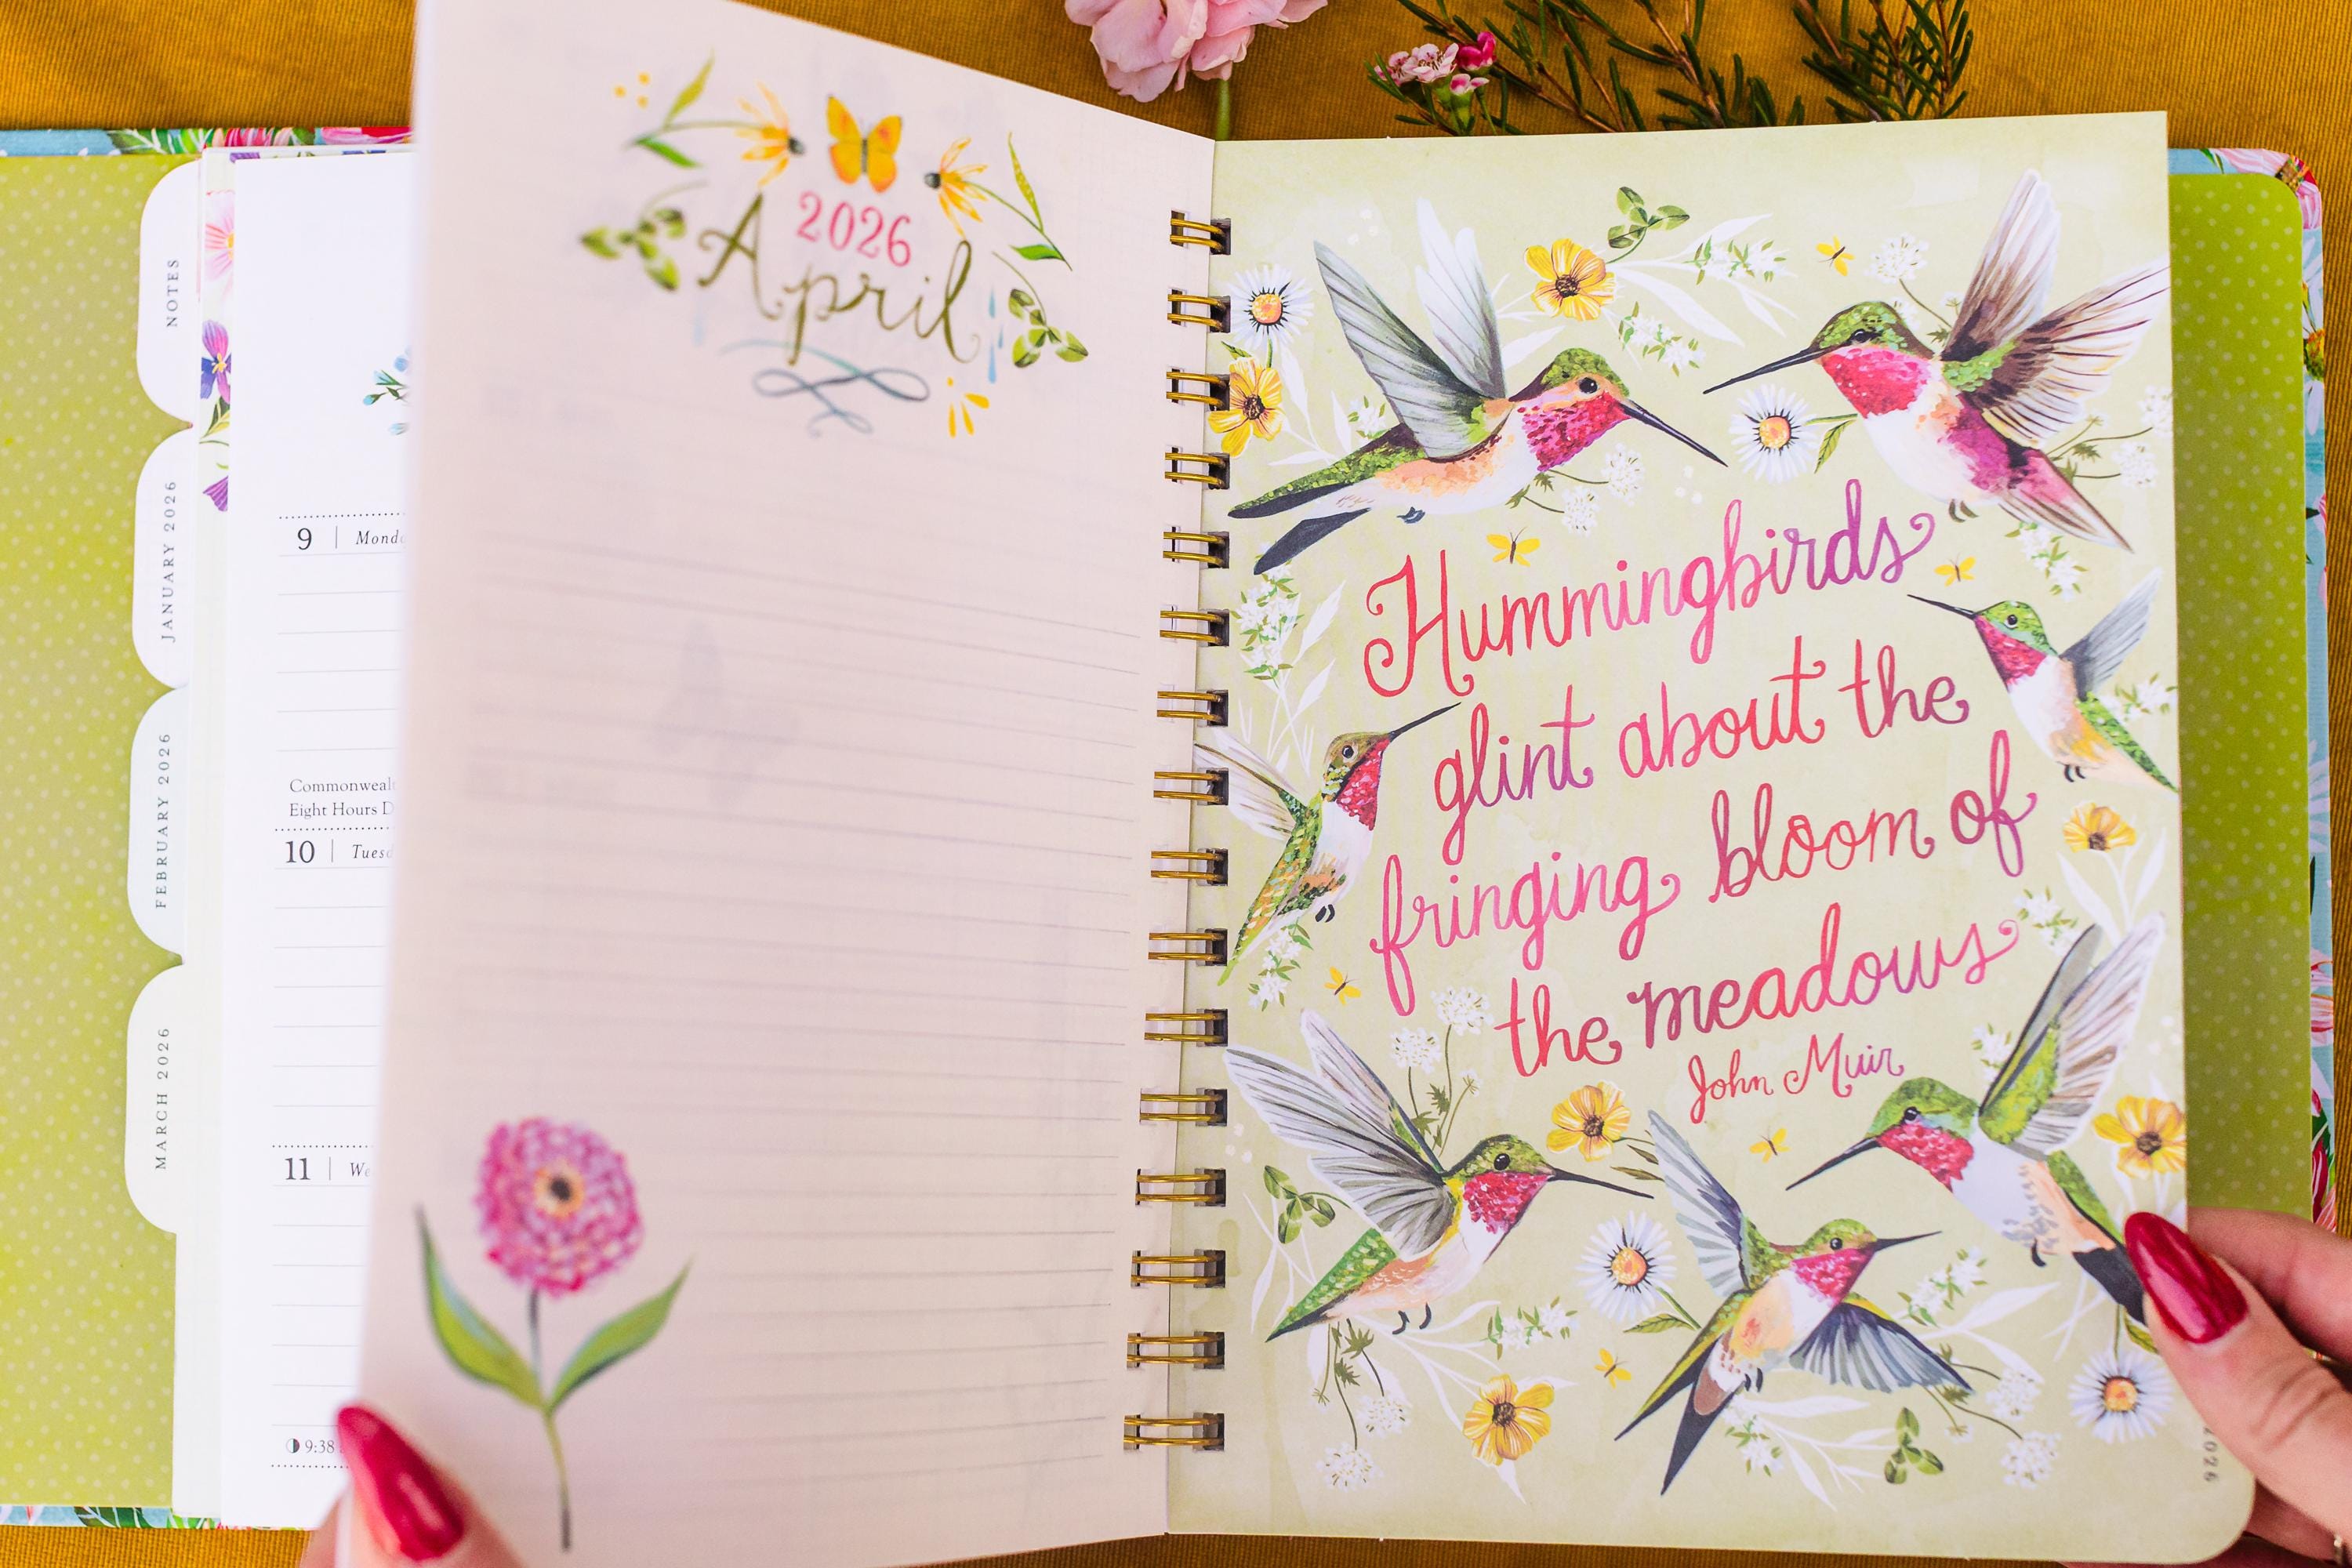 NOTES
JANUARY 2026
FEBRUARY 2026
MARCH 2026
9
10
Eight Hours
11
9:38
2026
April
Hummingbirds
glint about the
fringing bloom of
the meadows
John Muir
2026